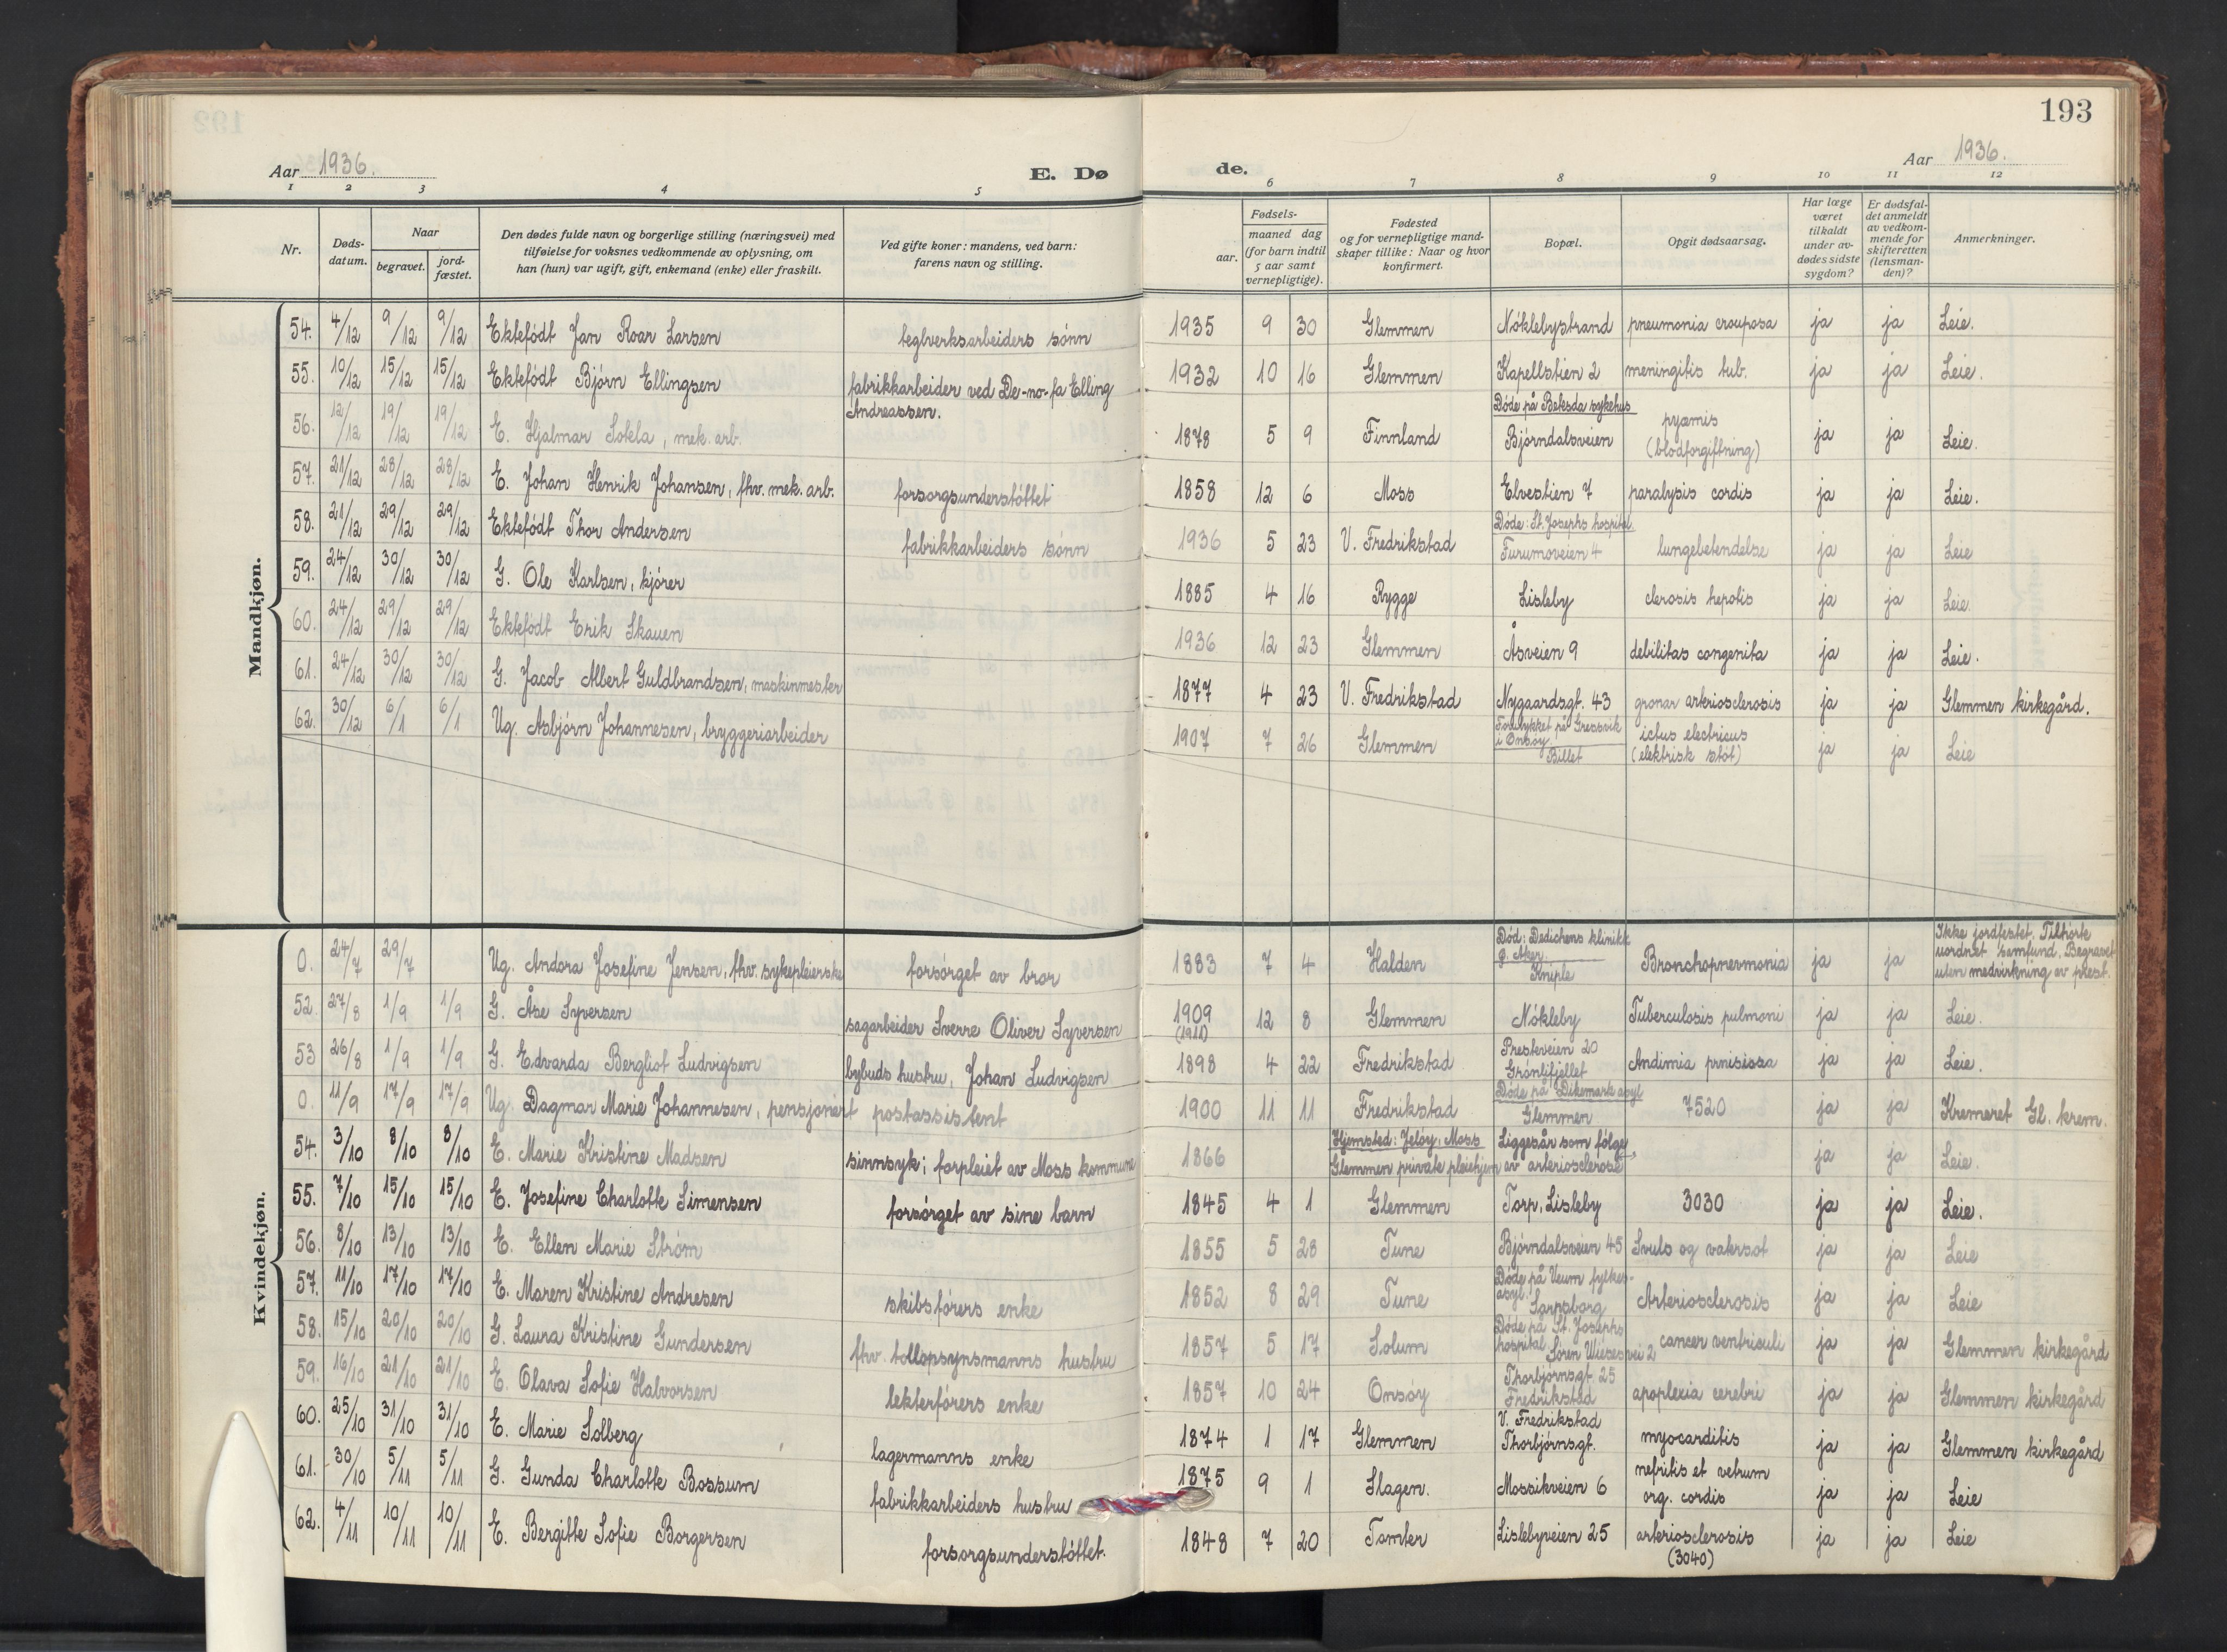 193
Aar 1936.
E. Dø
de.
Aar 1936.
1 2 3 4 5 6 7 8 9 10 11 12
Nr.
Døds-
datum.
Naar
begravet.
jord-
fæstet.
Den dødes fulde navn og borgerlige stilling (næringsvei) med
tilføielse for voksnes vedkommende av oplysning, om
han (hun) var ugift, gift, enkemand (enke) eller fraskilt.
Ved gifte koner: mandens, ved barn:
farens navn og stilling.
Fødsels-
aar.
maaned dag
(for barn indtil
5 aar samt
vernepligtige).
Fødested
og for vernepligtige mand-
skaper tillike: Naar og hvor
konfirmert.
Bopæl.
Opgit dødsaarsag.
Har læge
været
tilkaldt
under av-
dødes sidste
sygdom?
Er dødsfal-
det anmeldt
av vedkom-
mende for
skifteretten
(lensman-
den)?
Anmerkninger.
Mandkjøn.
54. 4/12 9/12 9/12 Ektefödt Jan Roar Larsen teglverksarbeiders sönn 1935 9 30 Glemmen Nöklebystrand pneumonia crouposa ja ja Leie.
55. 10/12 15/12 15/12 Ektefödt Björn Ellingsen fabrikkarbeider ved De-no-fa Elling
Andreassen. 1932 10 16 Glemmen Kapellstien 2 meningitis tub. ja ja Leie.
56. 12/12 19/12 19/12 E. Hjalmar Sokla, mek. arb. 1878 5 9 Finnland Döde på Betesda sykehus
Björndalsveien pyæmis
(blodforgiftning) ja ja Leie.
57. 21/12 28/12 28/12 E. Johan Henrik Johansen, fhv. mek. arb. forsorgsunderstöttet 1858 12 6 Moss Elvestien 7 paralysis cordis ja ja Leie.
58. 21/12 29/12 29/12 Ektefödt Thor Andersen fabrikkarbeiders sönn 1936 5 23 V. Fredrikstad Döde: St. Josephs hospital
Furumoveien 4 lungebetendelse ja ja Leie
59. 24/12 30/12 30/12 G. Ole Karlsen, kjörer 1885 4 16 Rygge Lisleby clerosis hepatis ja ja Leie.
60. 24/12 29/12 29/12 Ektefödt Erik Skauen 1936 12 23 Glemmen Åsveien 9 debilitas congenita ja ja Leie.
61. 24/12 30/12 30/12 G. Jacob Albert Guldbrandsen, maskinmester 1877 4 23 V. Fredrikstad Nygaardsgt. 43 gronar arteriosclerosis ja ja Glemmen kirkegård.
62. 30/12 6/1 6/1 Ug. Asbjörn Johannesen, bryggeriarbeider 1907 7 26 Glemmen Forulykket på Gressvik
i Onsöy
Billet ictus electricus
(elektrisk stöt) ja ja Leie
Kvindekjøn.
0. 24/7 29/7 Ug. Andora Josefine Jensen, fhv. sykepleierske forsörget av bror 1883 7 4 Halden Död: Dedichens klinikk
Ö. Aker.
Kniple Bronchopnevmonia ja ja Ikke jordfestet. Tilhörte
uordnet samfund. Begravet
uten medvirkning av prest.
52. 27/8 1/9 1/9 G. Åse Syversen sagarbeider Sverre Oliver Syversen 1909
(1911) 12 8 Glemmen Nökleby Tuberculosis pulmoni ja ja Leie.
53 26/8 1/9 1/9 G. Edvarda Bergliot Ludvigsen bybuds hustru, Johan Ludvigsen 1898 4 22 Fredrikstad Presteveien 20
Grönlifjellet Andimia prnisissa ja ja Leie.
0. 11/9 17/9 17/9 Ug. Dagmar Marie Johannesen, pensjonert postassistent 1900 11 11 Fredrikstad Döde på Dikemark asyl
Glemmen 7520 ja ja Kremeret Gl. krem.
54. 3/10 8/10 8/10 E. Marie Kristine Madsen sinnsyk; forpleiet av Moss kommune 1866 Hjemsted: Jelöy, Moss
Glemmen private pleiehjem Liggesår som fölge
av arteriosclerose ja ja Leie.
55. 7/10 15/10 15/10 E. Josefine Charlotte Simensen forsörget av sine barn 1845 4 1 Glemmen Torp, Lisleby 3030 ja ja Leie.
56. 8/10 13/10 13/10 E. Ellen Marie Ström 1855 5 28 Tune Björndalsveien 45 Svuls og vatersot ja ja Leie
57. 11/10 17/10 17/10 E. Maren Kristine Andresen skibsförers enke 1852 8 29 Tune Döde på Veum fylkes-
asyl.
Sarpsborg Arteriosclerosis ja ja Leie
58. 15/10 20/10 20/10 G. Laura Kristine Gundersen fhv. tollopsynsmanns hustru 1857 5 17 Solum Döde på St. Josephs
hospital Sören Wiesesvei 2 cancer ventriculi ja ja Glemmen kirkegård
59. 16/10 21/10 21/10 E. Olava Sofie Halvorsen lekterförers enke 1857 10 24 Onsöy Thorbjörnsgt. 25
Fredrikstad apoplexia cerebri ja ja Glemmen kirkegård
60. 25/10 31/10 31/10 E. Marie Solberg lagermanns enke 1874 1 17 Glemmen V. Fredrikstad
Thorbjörnsgt. myocarditis ja ja Glemmen kirkegård
61. 30/10 5/11 5/11 G. Gunda Charlotte Bossum fabrikkarbeiders hustru 1875 9 1 Slagen. Mossikveien 6 nefritis et vetrum
org. cordis ja ja Leie
62. 4/11 10/11 10/11 E. Bergitte Sofie Borgersen forsorgsunderstöttet. 1848 7 20 Tomter Lislebyveien 25 arteriosclerosis
(3040) ja ja Leie